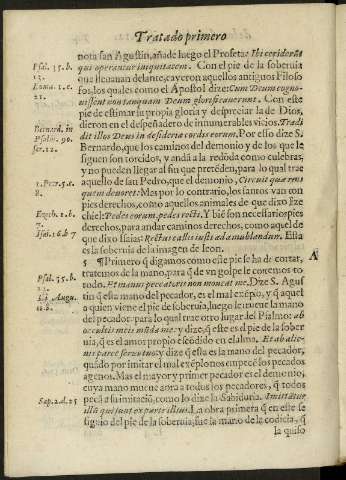 Tratado primero
nota san Agustin, añade luego el Profeta: Ibi ceciderūt
qui operantur iniquitatem. Con el pie de la soberuia
que lleuauan delante, cayeron aquellos antiguos Filoso
fos, los quales como el Apostol dize: Cum Deum cogno-
uissent non tanquam Deum glorificauerunt. Con este
pie de estimar su propia gloria y despreciar la de Dios,
dieron en el despeñadero de innumerables vicios. Tradi
dit illos Deus in desideria cordis eorum. Por esso dize S.
Bernardo, que los caminos del demonio y de los que le
siguen son torcidos, y andā a la redōda como culebras,
y no pueden llegar al fin que pretēden, para lo qual trae
aquello de san Pedro, que el demonio, Circuit quærens
quem deuoret. Mas por lo contrario, los santos van con
pies derechos, como aquellos animales de que dixo Eze
chiel: Pedes eorum, pedes recti. Y biē son necessarios pies
derechos, para andar caminos derechos, como aquel de
que dixo Isaias: Rectus callis iusti ad ambulandum. Esta
es la soberuia de la imagen de leon.
5 ¶ Primero q̃ digamos como este pie se ha de cortar,
tratemos de la mano, para q̃ de vn golpe le cortemos to-
do. Et manus peccatoris non moueat me. Dize S. Agus
tin q̃ esta mano del pecador, es el mal exēplo, y q̃ aquel
a quien viene el pie de soberuia, luego le mueue la mano
del pecador: para lo qual trae otro lugar del Psalmo: ab
occultis meis mūda me: y dize, q̃ este es el pie de la sober
uia, q̃ es el amor propio escōdido en el alma. Et ab alie-
nis parce seruo tuo: y dize q̃ esta es la mano del pecador,
quādo por imitar el mal exēplo nos empecē los pecados
agenos. Mas el mayor y primer pecador es el demonio,
cuya mano mueue aora a todos los pecadores, q̃ todos
pecā a su imitaciō, como lo dize la Sabiduria. Imitātur
illū qui sunt ex parte illius. La obra primera q̃ en este se
siguio del pie de la soberuia, fue la mano de la codicia, q̃
la quiso
Psal. 35. b.
13.
Roma. 1. c.
21.
Bernard. in
Psalm. 90.
ser. 12.
1. Petr. 5. c.
8.
Ezech. 1. b.
7.
Isai. 26. b. 7
Psal. 35. b.
A
Sap. 2. d. 25